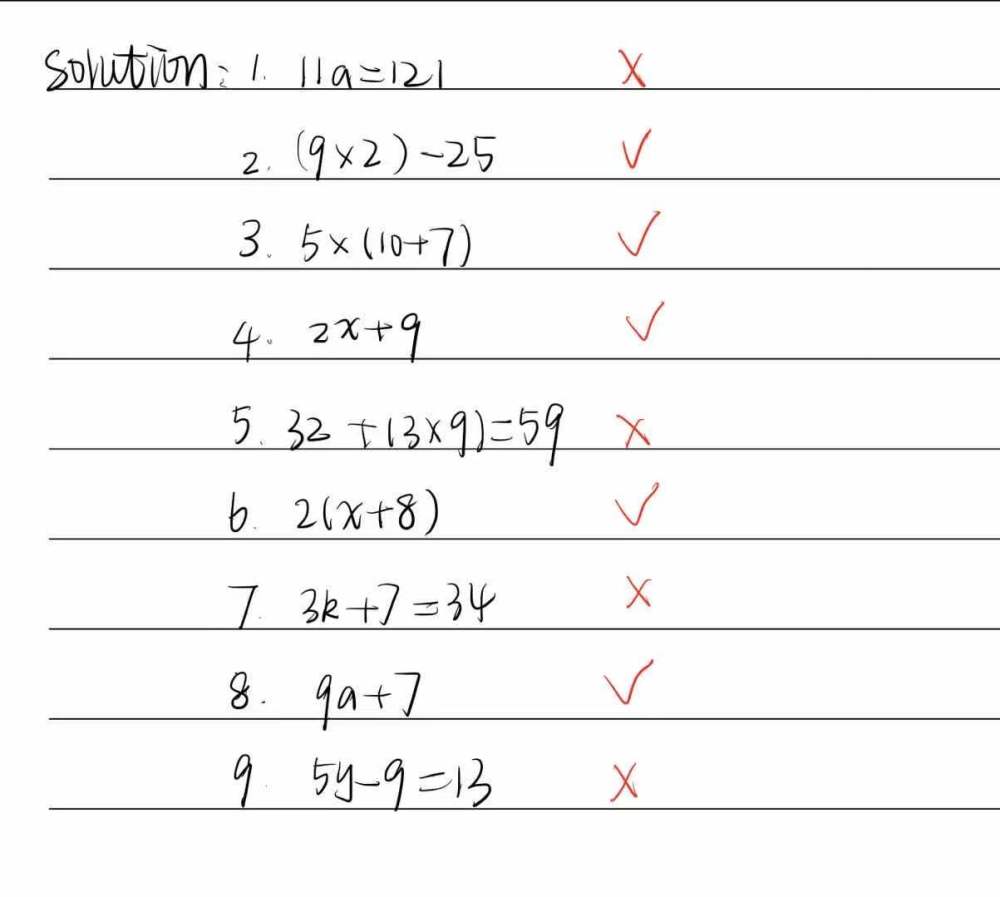 Solution: 1. 11a=121 ×
2. (9×2)-25 ✓
3. 5×(10+7) ✓
4. 2x+9 ✓
5. 32+(3×9)=59 ×
6. 2(x+8) ✓
7. 3k+7=34 ×
8. 9a+7 ✓
9. 5y-9=13 ×